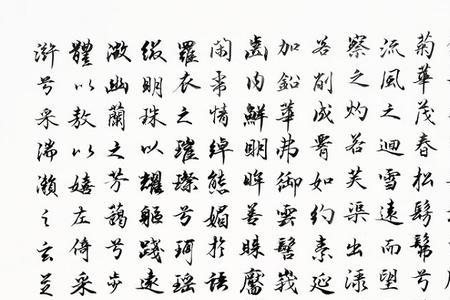 菊華茂春松髣髴兮
流風之迴雪遠而望
察之灼若芙渠出渌
若削成肩如約素延
加鉛華弗御雲髻峩
齒内鮮明眸善睞靨
閑柔情綽態媚於語
羅衣之璀璨兮珥瑶
綴明珠以耀軀踐遠
微幽蘭之芳藹兮步
體以敖以嬉左倚采
滸兮采湍瀨之玄芝